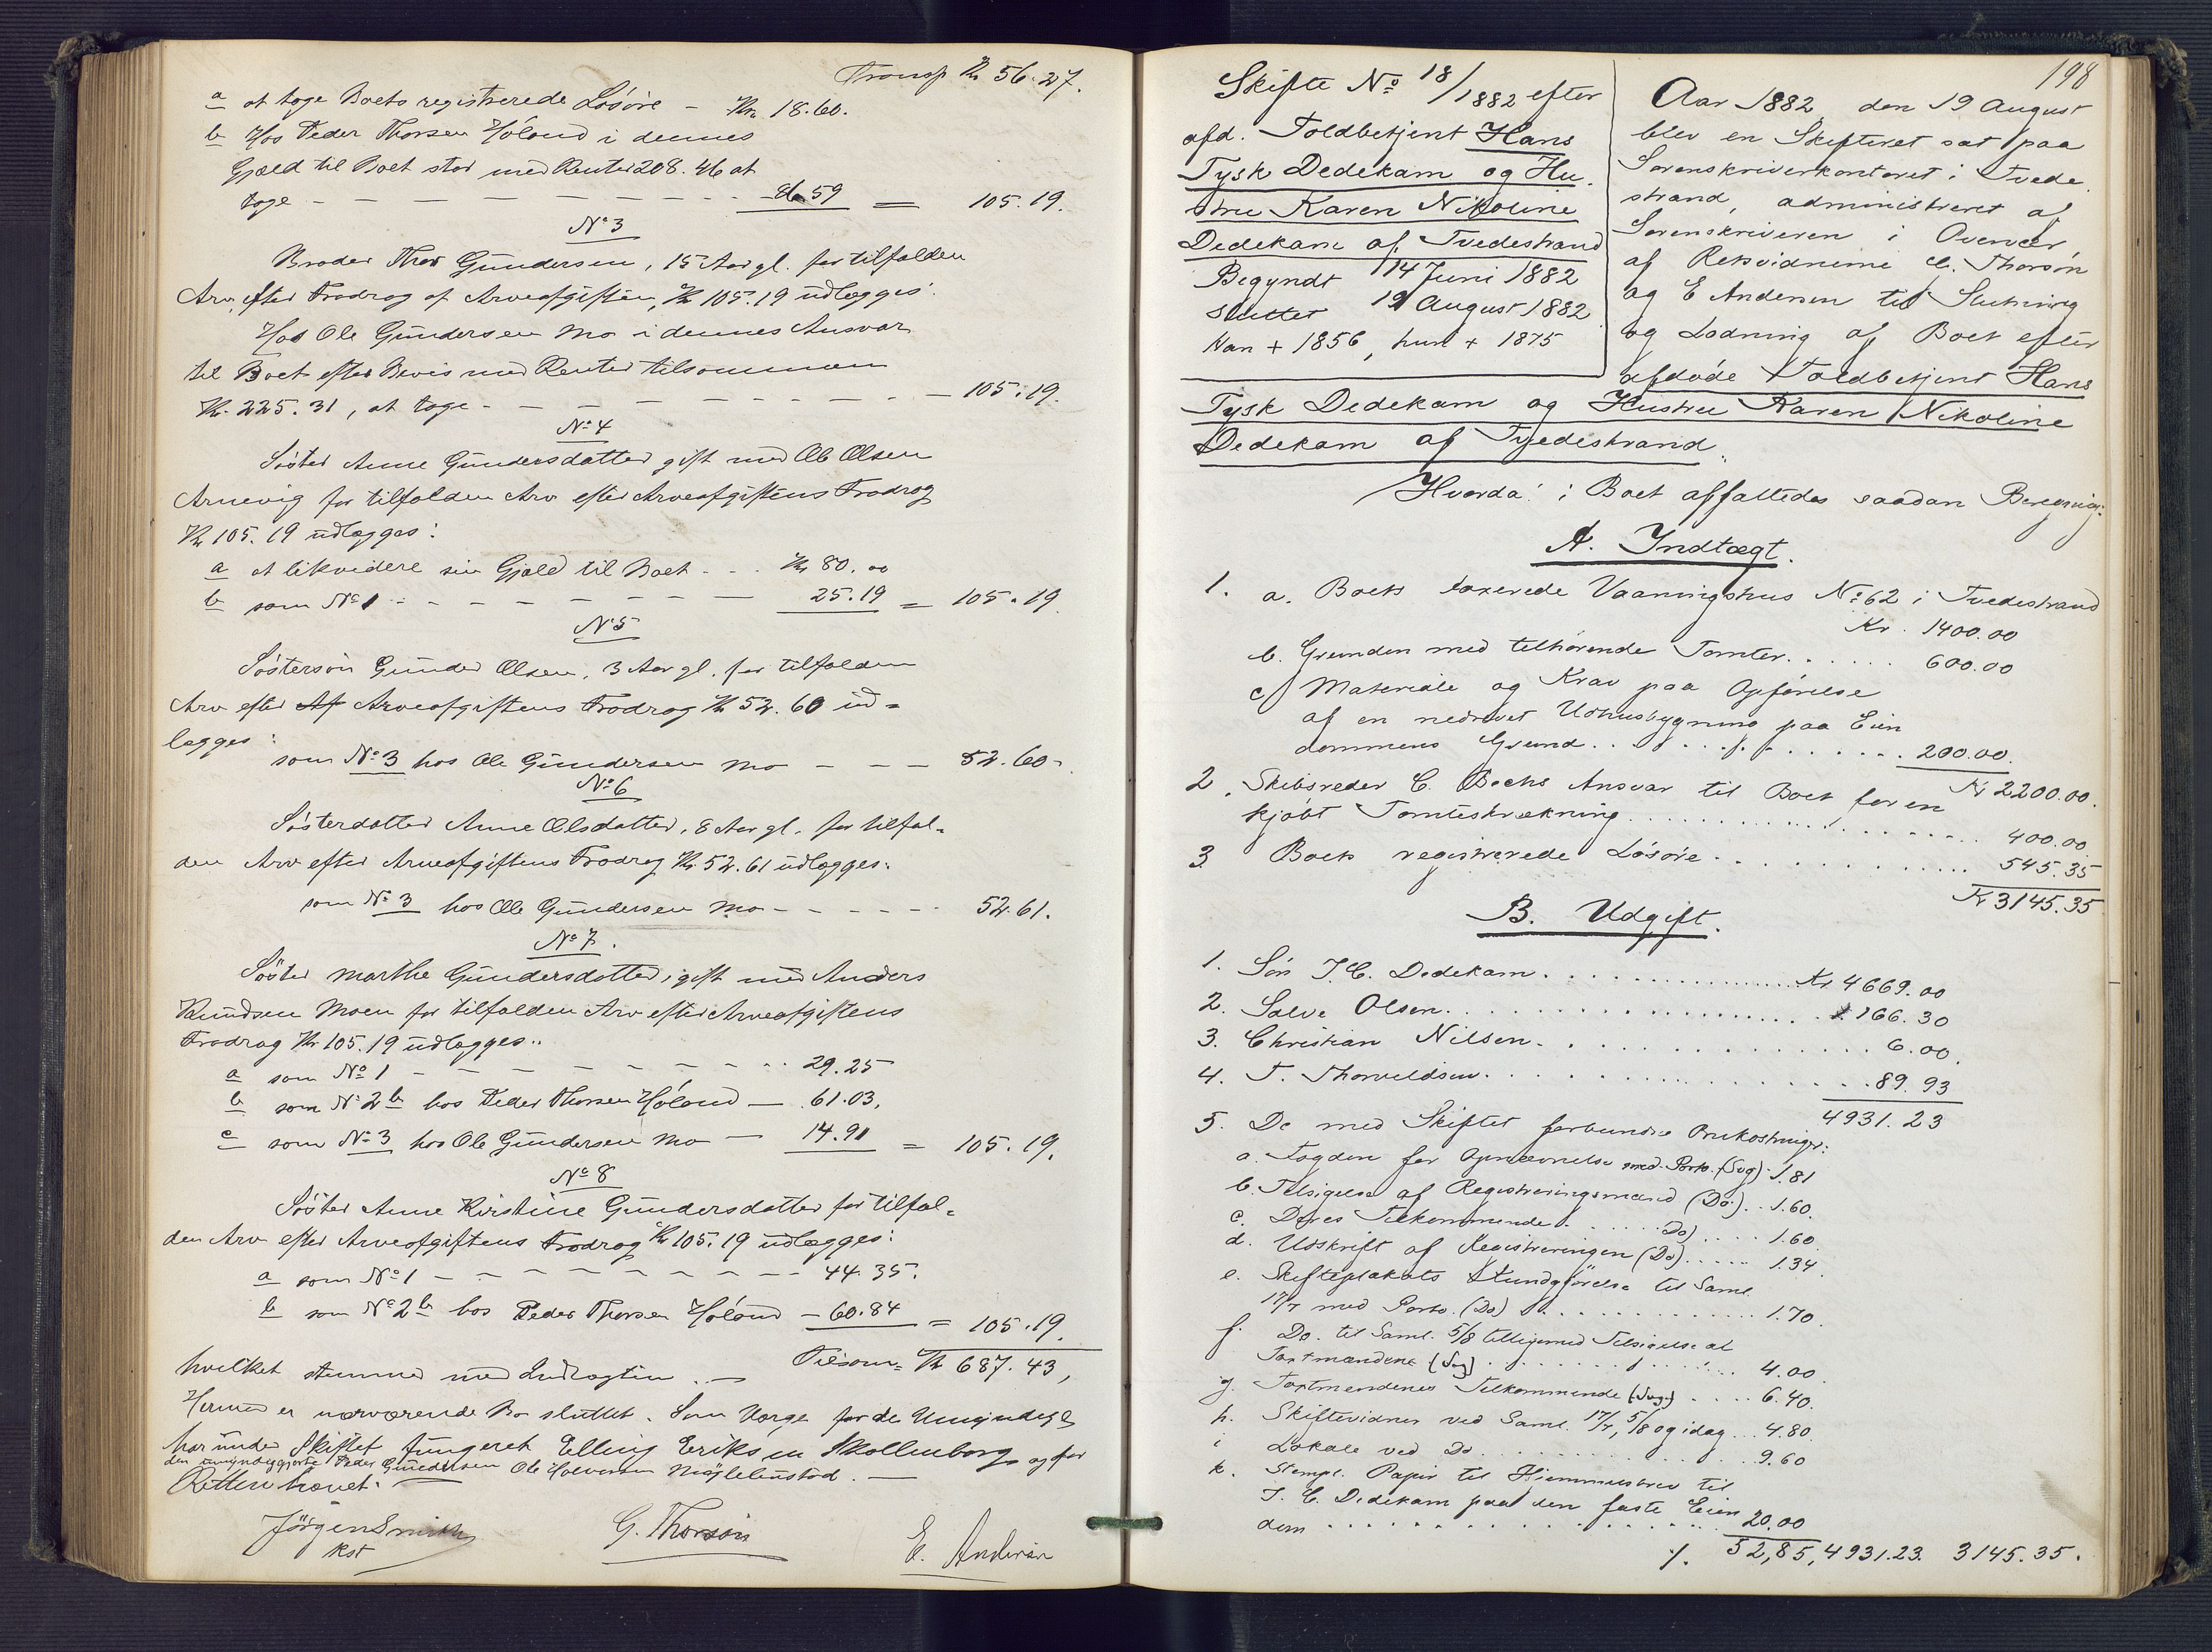 Transp Kr 56.27.
a at tage Boets registrerede Løsøre - Kr. 18.60.
b Hos Peder Thorsen Høland i dennes
Gjæld til Boet stor med Renter 208.46 at
tage - - - - - - - - 86.59 = 105.19.
No 3
Broder Thor Gundersen, 15 Aar gl. for tilfalden
Arv, efter Fradrag af Arveafgiften, Kr 105.19 udlægges:
Hos Ole Gundersen Mo i dennes Ansvar
til Boet efter Bevis med Renter tilsammen
Kr. 225.31, at tage - - - - - - - - 105.19.
No 4
Søster Anne Gundersdatter gift med Ole Olsen
Arnevig for tilfalden Arv efter Arveafgiftens Fradrag
Kr 105.19 udlægges:
a at likvidere sin Gjæld til Boet - - - Kr 80.00
b som No 1 - - - - - - - 25.19 = 105.19
No 5
Søstersøn Gunder Olsen, 3 Aar gl. for tilfalden
Arv efter Af Arveafgiftens Fradrag Kr 52.60 ud=
lægges:
som No 3 hos Ole Gundersen Mo - - - 52.60
No 6
Søsterdatter Anne Olsdatter, 8 Aar gl. for tilfal=
den Arv efter Arveafgiftens Fradrag Kr 52.61 udlægges:
som No 3 hos Ole Gundersen Mo - - - - - 52.61.
No 7.
Søster Marthe Gundersdatter, gift med Anders
Knudsen Moen for tilfalden Arv efter Arveafgiftens
Fradrag Kr 105.19 udlægges:
a som No 1 - - - - - - - - 29.25
b som No 2b hos Peder Thorsen Høland - 61.03.
c som No 3 hos Ole Gundersen Mo - 14.91 = 105.19.
No 8
Søster Anne Kirstine Gundersdatter for tilfal=
den Arv efter Arveafgiftens Fradrag Kr 105.19 udlægges:
a som No 1 - - - - - - - - 44.35.
b som No 2b hos Peder Thorsen Høland - 60.84 = 105.19.
hvilket stemmer med Indtægten. - Tilsam= Kr 687.43,
Hermed er nærværende Bo sluttet. Som Værge for de Umyndige
har under Skiftet fungeret Elling Eriksen Skollenborg og for
den umyndiggjorte Peder Gundersen Ole Halvorsen
Retten hævet. -
Jørgen Smith G. Thorsön E. Andersen
Kst
198
Skifte No 18/1882 efter
afd. Toldbetjent Hans
Tysk Dedekam og Hu
stru Karen Nikoline
Dedekam af Tvedestrand
Begyndt 14 Juni 1882
sluttet 19 August 1882
Han + 1856, hun + 1875
Aar 1882 den 19 August
blev en Skifteret sat paa
Sorenskriverkontoret i Tvede
strand, administreret af
Sorenskriveren i Overvær
af Retsvidnerne G. Thorsön
og E Andersen til Slutning
og Lodning af Boet efter
afdøde Toldbetjent Hans
Tysk Dedekam og Hustru Karen Nikoline
Dedekam af Tvedestrand.
Hvorda: i Boet affattedes saadan Beregning:
A. Indtægt.
1. a. Boets taxerede Vaaningshus No 62 i Tvedestrand
Kr. 1400.00
b. Grunden med tilhørende Tomter. . . . . . 600.00
c. Materiale og Krav paa Opførelse
af en nedrevet Udhusbygning paa Eien
dommens Grund. . . . . . . . . 200.00.
Kr 2200.00.
2. Skibsreder C. Bochs Ansvar til Boet for en
kjøbt Tomtestrækning. . . . . . . . . . 400.00.
3 Boets registrerede Løsøre. . . . . . . . . 545.35
Kr 3145.35
B. Udgift.
1. Søn J. C. Dedekam. . . . . . . . Kr 4669.00
2. Salve Olsen. . . . . . . . . . 166.30
3. Christian Nilsen. . . . . . . . . . 6.00.
4. T. Thorvaldsen. . . . . . . . . . 89.93
4931.23
5. De med Skiftet forbundne Omkostninger:
a. Fogden for Opnævnelse med Porto. (Sog) 1.81
b. Tilsigelse af Registreringsmænd (Do). . 1.60.
c. Deres Tilkommende. . . . . . Do) . . . . 1.60
d. Udskrift af Registreringen (Do) . . . . . 1.34
e. Skifteplakats Kundgjørelse til Saml.
17/7 med Porto. (Do) . . . . . . . . 1.70.
f. Do. til Saml. 5/8 tilligemed Tilsigelse af
Taxtmændene (Sog) . . . . . . . . . 4.00.
g. Taxtmændenes Tilkommende (Sog) . . . . 6.40.
h. Skiftevidner ved Saml. 17/7, 5/8 og idag . . . 4.80
i Lokale ved Do . . . . . . . . . 9.60
k. Stempl. Papir til Hjemmelsbrev til
J. C. Dedekam paa den faste Eien
dom . . . . . . . . . . 20.00
./. 52,85, 4931.23. 3145.35.